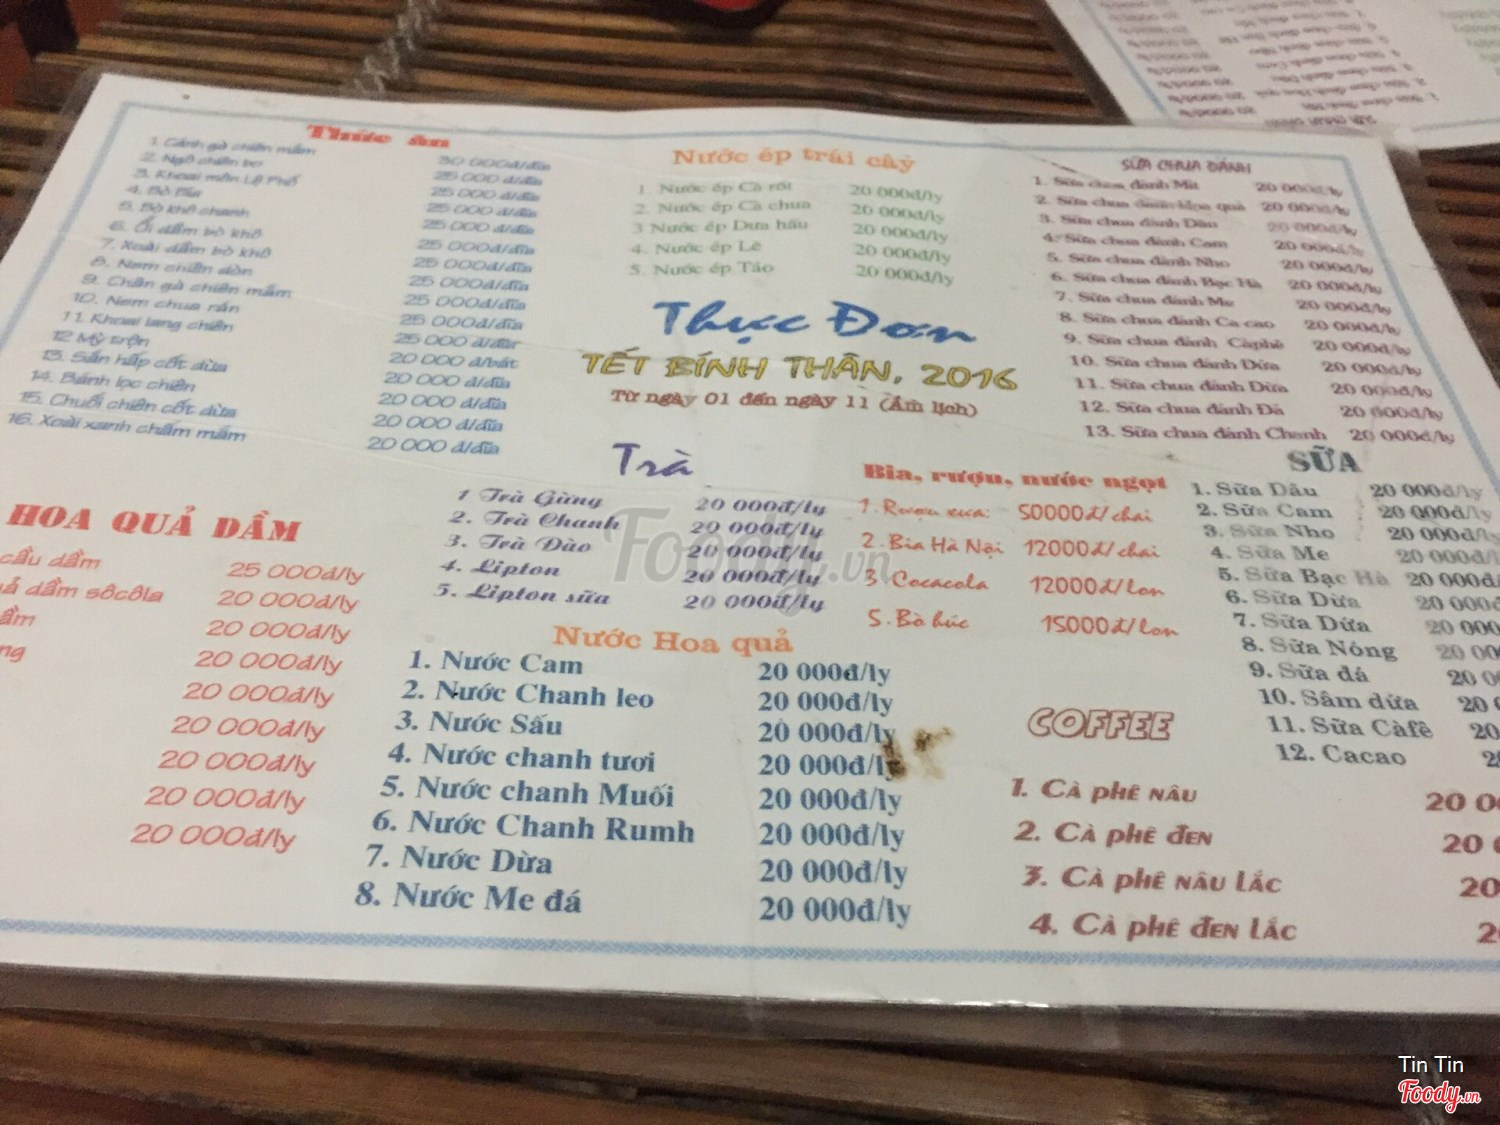 Thức ăn
1. Cánh gà chiên mắm 30 000đ/đĩa
2. Ngô chiên bơ 25 000 đ/đĩa
3. Khoai môn Lệ Phố 25 000 đ/đĩa
4. Bò Bía 25 000 đ/đĩa
5. Bò khô chanh 25 000 đ/đĩa
6. Ổi dầm bò khô 25 000đ/đĩa
7. Xoài dầm bò khô 25 000đ/đĩa
8. Nem chiên dòn 25 000đ/đĩa
9. Chân gà chiên mắm 25 000đ/đĩa
10. Nem chua rán 25 000đ/đĩa
11. Khoai lang chiên 25 000 đ/đĩa
12 Mỳ trộn 20 000 đ/bát
13. Sắn hấp cốt dừa 20 000 đ/đĩa
14. Bánh lọc chiên 20 000 đ/đĩa
15. Chuối chiên cốt dừa 20 000 đ/đĩa
16. Xoài xanh chấm mắm 20 000 đ/đĩa
HOA QUẢ DẦM
cầu dầm 25 000đ/ly
dầm sôcôla 20 000đ/ly
20 000đ/ly
20 000đ/ly
20 000đ/ly
20 000đ/ly
20 000đ/ly
20 000đ/ly
20 000đ/ly
Nước ép trái cây
1. Nước ép Cà rốt 20 000đ/ly
2. Nước ép Cà chua 20 000đ/ly
3 Nước ép Dưa hấu 20 000đ/ly
4. Nước ép Lê 20 000đ/ly
5. Nước ép Táo 20 000đ/ly
Thực Đơn
TẾT BÍNH THÂN, 2016
Từ ngày 01 đến ngày 11 (Âm lịch)
Trà
1 Trà Gừng 20 000đ/ly
2. Trà Chanh 20 000đ/ly
3. Trà Đào 20 000đ/ly
4. Lipton 20 000đ/ly
5. Lipton sữa 20 000đ/ly
Nước Hoa quả
1. Nước Cam 20 000đ/ly
2. Nước Chanh leo 20 000đ/ly
3. Nước Sấu 20 000đ/ly
4. Nước chanh tươi 20 000đ/ly
5. Nước chanh Muối 20 000đ/ly
6. Nước Chanh Rumh 20 000đ/ly
7. Nước Dừa 20 000đ/ly
8. Nước Me đá 20 000đ/ly
SỮA CHUA ĐÁNH
1. Sữa chua đánh Mít 20 000đ/ly
2. Sữa chua đánh Hoa quả 20 000đ/ly
3. Sữa chua đánh Dâu 20 000đ/ly
4. Sữa chua đánh Cam 20 000đ/ly
5. Sữa chua đánh Nho 20 000đ/ly
6. Sữa chua đánh Bạc Hà 20 000đ/ly
7. Sữa chua đánh Me 20 000đ/ly
8. Sữa chua đánh Ca cao 20 000đ/ly
9. Sữa chua đánh Càphê 20 000đ/ly
10. Sữa chua đánh Dứa 20 000đ/ly
11. Sữa chua đánh Dừa 20 000đ/ly
12. Sữa chua đánh Đá 20 000đ/ly
13. Sữa chua đánh Chanh 20 000đ/ly
Bia, rượu, nước ngọt
1. Rượu xưa: 50000đ/chai
2. Bia Hà Nội 12000đ/chai
3. Cocacola 12000đ/lon
5. Bò húc 15000đ/lon
SỮA
1. Sữa Dâu 20 000đ/ly
2. Sữa Cam 20 000đ/ly
3. Sữa Nho 20 000đ/ly
4. Sữa Me 20 000đ/
5. Sữa Bạc Hà 20 000đ/
6. Sữa Dừa 20 000đ
7. Sữa Dứa 20 000
8. Sữa Nóng 20 00
9. Sữa đá 20 0
10. Sâm dứa 20
11. Sữa Càfê 20
12. Cacao 20
COFFEE
1. Cà phê nâu 20 0
2. Cà phê đen 20
3. Cà phê nâu lắc 20
4. Cà phê đen lắc 2
Foody.vn
Tin Tin
Foody.vn